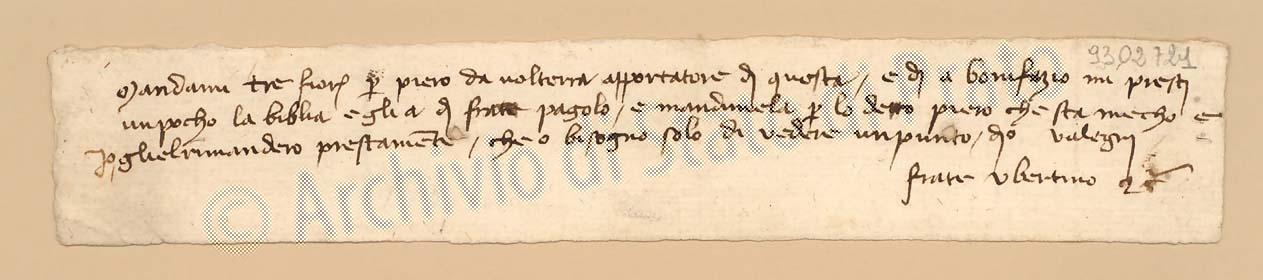 9302721
Mandami tre fior. p piero da volterra apportatore di questa / e di a bonifazio mi presti
unpocho la bibbia e gli a di frate pagolo / e mandamela p lo detto piero che sta mecho e
glielrimandero prestamente / che o bisogno solo di vedere unpunto / dio valegni
frate ubertino
© Archivio di Stato